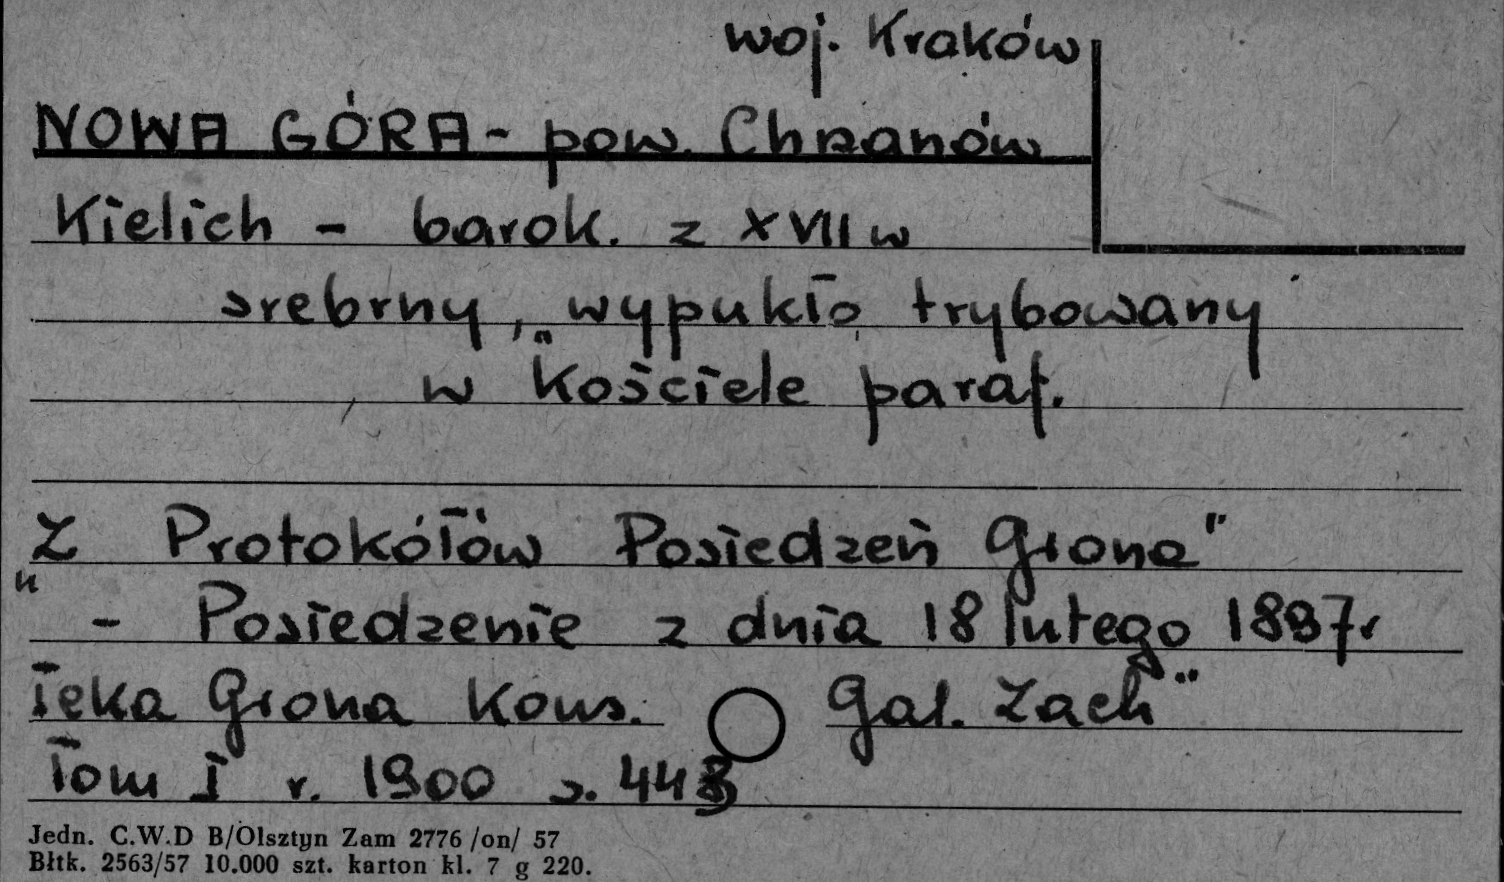 woj. Kraków
NOWA GÓRA - pow. Chrzanów
Kielich - barok. z XVII w
srebrny, „wypukło trybowany
w kościele paraf.
Z Protokółów Posiedzeń Grona"
" - Posiedzenie z dnia 18 lutego 1897r
Teka Grona Kons. Gal. Zach"
Tom I r. 1900 s. 443
Jedn. C.W.D B/Olsztyn Zam 2776 /on/ 57
Błtk. 2563/57 10.000 szt. karton kl. 7 g 220.